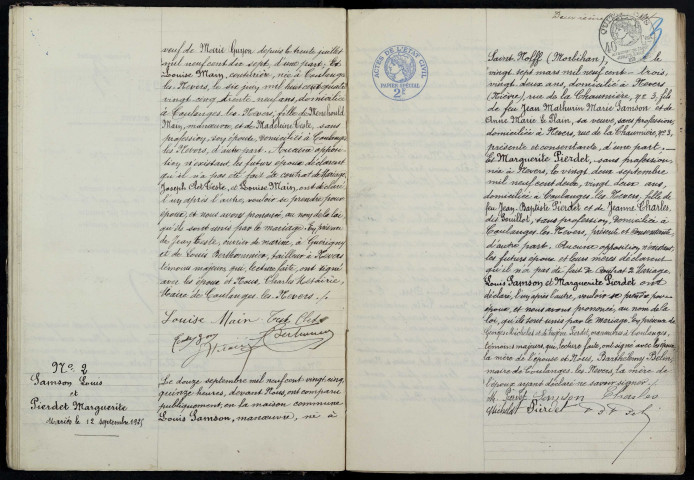 veuf de Marie Guyon depuis le trente juillet
mil neuf cent dix sept, d'une part; Et
Louise Main, couturière, née à Coulanges
les Nevers, le dix juin mil huit cent quatre
vingt cinq, trente neuf ans, domiciliée
à Coulanges les Nevers, fille de
Main, manœuvre, et de Madeleine Teste, sans
profession, son épouse, domiciliés à Coulanges
les Nevers, d'autre part. Aucune opposi-
tion n'existant, les futurs époux déclarent
qu'il n'a pas été fait de contrat de mariage.
Joseph Teste, et Louise Main, ont déclaré
l'un après l'autre, vouloir se prendre pour
époux, et nous avons prononcé, au nom de la loi,
qu'ils sont unis par le mariage. En présence
de Jean Teste, ouvrier de marine, à Guérigny
et de Louis Berthomier, tailleur à Nevers
témoins majeurs qui, lecture faite, ont signé
avec les époux et Nous, Charles
Maire de Coulanges les Nevers./.
Louise Main
No 2
Samson Louis
et
Pierdet Marguerite
Mariés le 12 septembre 1925
Le douze septembre mil neuf cent vingt cinq,
quinze heures, devant Nous, ont comparu
publiquement, en la maison commune
Louis Samson, manœuvre, né à
ACTES DE L'ÉTAT CIVIL
PAPIER SPÉCIAL
2F
Saint Nolff (Morbihan), le
vingt sept mars mil neuf cent trois,
vingt deux ans, domicilié à Nevers
(Nièvre), rue de la Chaumière, no 3, fils
de feu Jean Mathurin Marie Samson et de
Anne Marie Le Plain, sa veuve, sans profession,
domiciliée à Nevers, rue de la Chaumière, no 3,
présente et consentante, d'une part.
Et Marguerite Pierdet, sans profession,
née à Nevers, le vingt deux septembre
mil neuf cent deux, vingt deux ans,
domiciliée à Coulanges les Nevers, fille de
feu Jean Baptiste Pierdet et de Jeanne Charles,
dit Pouillot, sans profession, domiciliée à
Coulanges les Nevers, présente et consentante
d'autre part. Aucune opposition n'existant,
les futurs époux et leurs mères déclarent
qu'il n'a pas été fait de contrat de mariage.
Louis Samson et Marguerite Pierdet ont
déclaré, l'un après l'autre, vouloir se prendre pour
époux, et nous avons prononcé, au nom de la
loi, qu'ils sont unis par le mariage. En présence de
Georges Michelot et de Eugène Pierdet, manœuvres à Coulanges,
témoins majeurs, qui, lecture faite, ont signé avec les époux,
la mère de l'épouse et Nous, Barthélemy Belin,
maire de Coulanges les Nevers, la mère de
l'époux ayant déclaré ne savoir signer./.
M. Pierdet Samson Charles
Michelot Pierdet